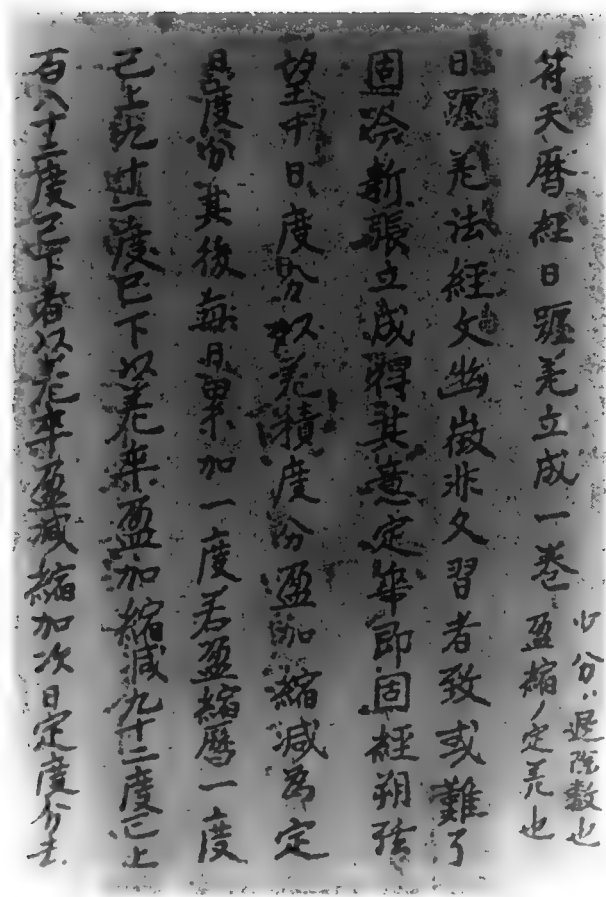 符天暦経日躔差立成一巻
少分八退除数也
盈縮ノ定差也
日躔差法経文幽微非久習者致或難了
因今新張立成得其意定筭即因経朔弦
望中日度分以差積度分盈加縮減為定
日度分其後毎日累加一度若盈縮暦一度
已上九十一度已下以差率盈加縮減九十二度已上
百八十二度已下者以差率盈減縮加次日定度分去